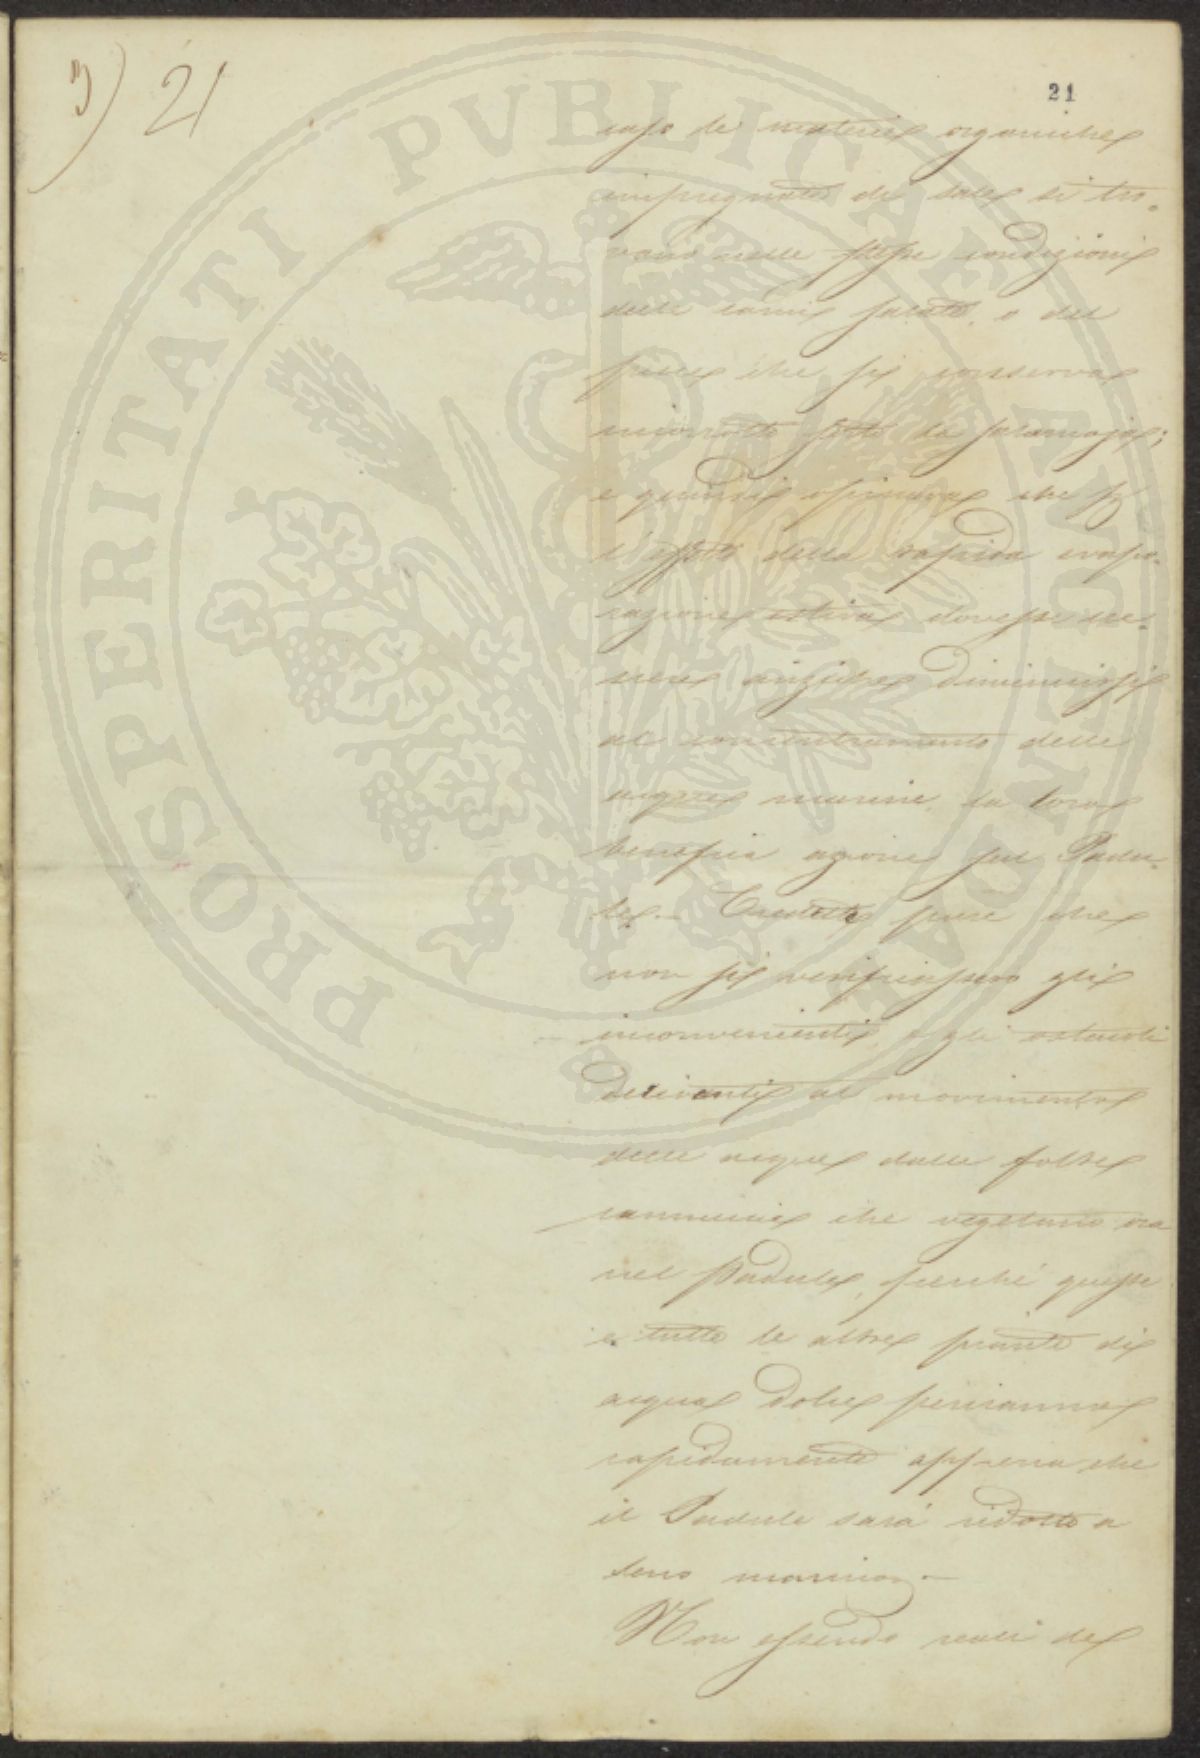 3) 21
21
caso le materie organiche
impregnate di sale si tro-
vano nelle stesse condizioni
delle carni salate, o del
pesce che si conserva
incorrotto sotto la salamoja;
e quindi opinava che p
l'effetto della rapida evapo-
razione estiva dovesse cre-
scere anziche diminuirsi
al concentramento delle
acque marine, la loro
benefica azione sul Padu-
le. Credette pure che
non si verificassero gli
inconvenienti, e gli ostacoli
derivanti al movimento
delle acque dalle folte
cannucce che vegetano ora
nel Padule, perchè queste
e tutte le altre piante di
acqua dolce periranno
rapidamente appena che
il Padule sarà ridotto a
seno marino.—
Non essendo reali del
PROSPERITATI PVBLICAE AVGENDAE